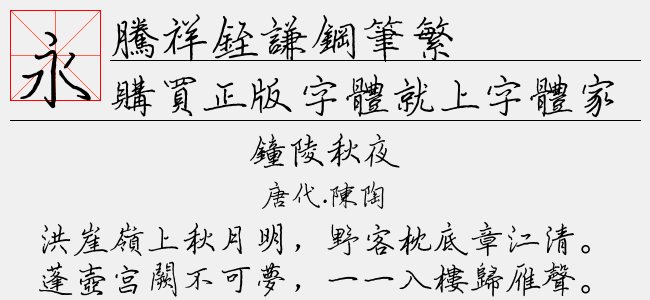 永
騰祥銍謙鋼筆繁
購買正版字體就上字體家
鐘陵秋夜
唐代.陳陶
洪崖嶺上秋月明，野客枕底章江清。
蓬壺宮闕不可夢，一一入樓歸雁聲。